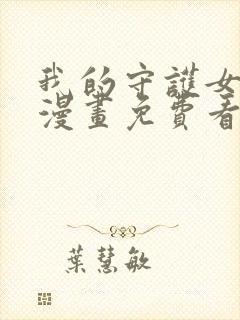 我的守護女
漫畫免費看
葉慧敏